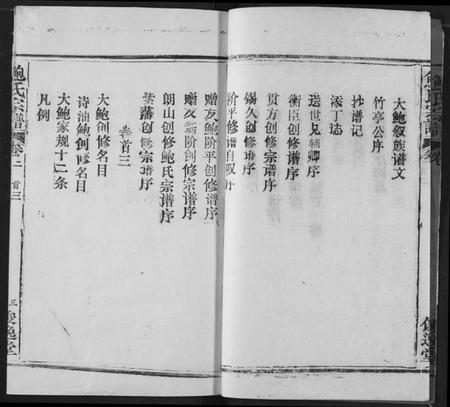 大鲍叙族谱文
竹亭公序
抄谱记
添丁誌
送世兄朝卿序
衡臣创修谱序
贯方创修宗谱序
锡久创修谱序
阶平修谱自叙序
赠友鲍阶平创修谱序
朗山创修鲍氏宗谱序
紫藩创修宗谱序
卷首三
大鲍创修名目
诗油鲍创修名目
大鲍家规十二条
凡例
鲍氏宗谱
卷首三
三